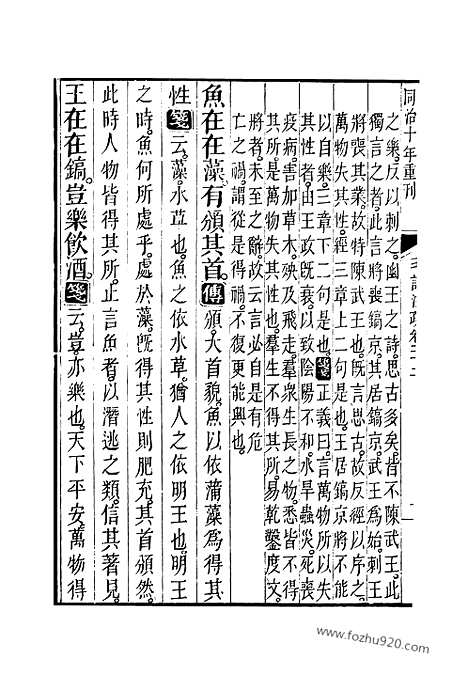 同治十年重刊
之樂。反以刺之。幽王之詩。思古多矣。皆不陳武王。此
獨言之者。此言將喪鎬京。其居鎬京。武王爲始。刺王
將喪其業。故特陳武王也。旣言思古。故反經以序之。
萬物失其性。經三章上二句是也。王居鎬京將不能
以自樂。三章下二句是也。箋正義曰。言萬物所以失
其性者。由王政旣衰。以致陰陽不和。水旱蟲災。死喪
疫病。害加草木。殃及飛走。羣衆生長之物。悉皆不得
其所。是萬物失其性也。羣生不得其所。易乾鑿度文。
將者。未至之辭。故云言必自是有危
亡之禍。謂從是得禍。不復更能興也。
魚在在藻。有頒其首。傳頒。大首貌。魚以依蒲藻爲得其
性。箋云。藻。水草也。魚之依水草。猶人之依明王也。明王
之時。魚何所處乎。處於藻。旣得其性則肥充。其首頒然。
此時人物皆得其所。正言魚者。以潛逃之類。信其著見。
王在在鎬。豈樂飲酒。箋云。豈。亦樂也。天下平安。萬物得
www.fozhu920.com